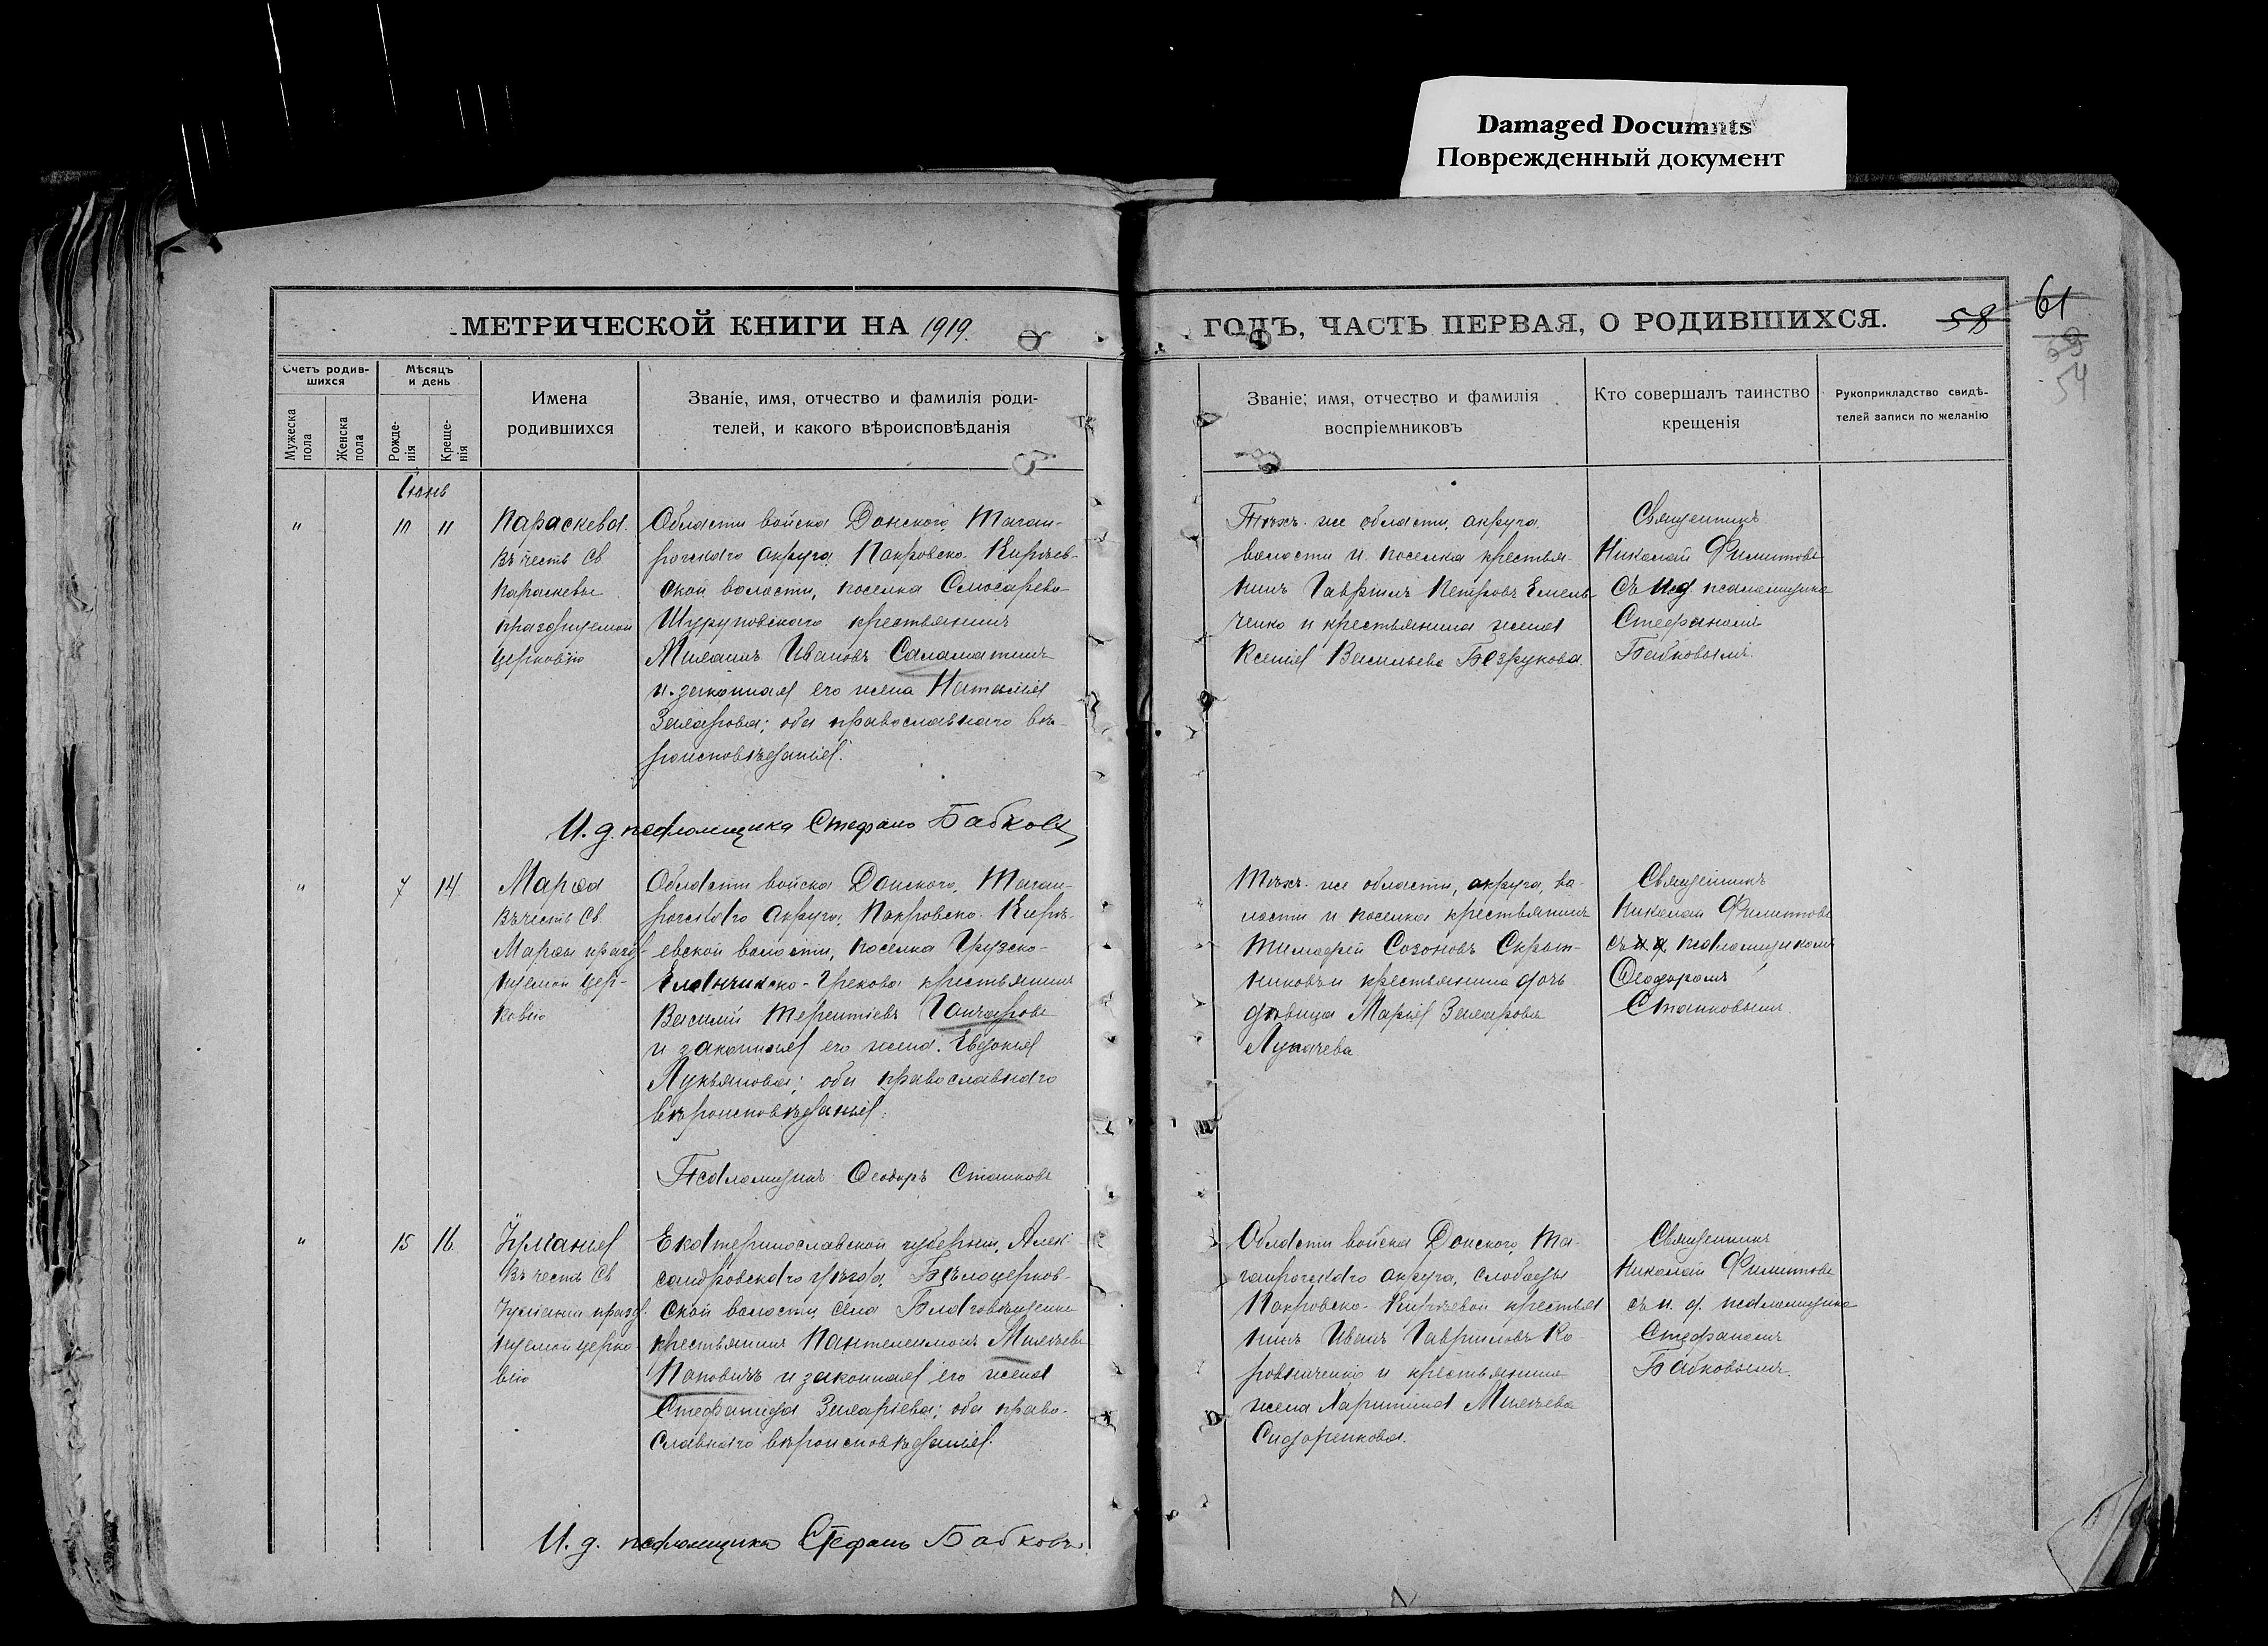 Damaged Documnts
Поврежденный документ
МЕТРИЧЕСКОЙ КНИГИ НА 1919.
ГОДЪ, ЧАСТЬ ПЕРВАЯ, О РОДИВШИХСЯ.
58
61
59
54
Счетъ родив-
шихся
Мѣсяцъ
и день
Мужеска
пола
Женска
пола
Рожде-
нія
Креще-
нія
Имена
родившихся
Званіе, имя, отчество и фамилія роди-
телей, и какого вѣроисповѣданія
Званіе; имя, отчество и фамилія
воспріемниковъ
Кто совершалъ таинство
крещенія
Рукоприкладство свидѣ-
телей записи по желанію
Іюнь
" 10 11
Параскева.
Въ честь Св
Параскевы
празднуемой
Церковію
Области войска Донского, Таган-
рогскаго округа, Покровско-Кирѣев-
ской волости, поселка Слюсарево-
Шуруповскаго крестьянинъ
Ивановъ Саламатинъ
и законная его жена Наталія
оба православнаго вѣ-
роисповѣданія.
Тѣхъ-же области, округа,
волости и поселка крестья-
нинъ Гавріилъ Петровъ Емель-
ченко и крестьянина жена
Ксенія Васильева Безрукова.
Священникъ
Николай Филиптовъ
съ и.д. псаломщика
Стефаномъ
Бабковымъ.
И. д. псаломщика Стефанъ Бабковъ
" 7 14
Марфа
Въ честь Св
Марфы празд-
нуемой Цер-
ковію
Области войска Донского, Таган-
рогскаго округа, Покровско-Кирѣ-
евской волости, поселка Грузско-
Еланчикско-Грекова крестьянинъ
Василій Терентіевъ Гончаровъ
и законная его жена Евдокія
Лукьянова; оба православнаго
вѣроисповѣданія.
Тѣхъ-же области, округа, во-
лости и поселка крестьянинъ
Тимофей Созоновъ Скрып-
никовъ и крестьянина дочь
дѣвица Марія
Лукачева
Священникъ
Николай Филиптовъ
съ и д псаломщикомъ
Ѳеодоромъ
Станковымъ.
Псаломщикъ Ѳеодоръ Станковъ
" 15 16
Іуліанія
Въ честь Св
Іуліаніи празд-
нуемой церко-
вію
Екатеринославской губерніи, Алек-
сандровскаго уѣзда, Бѣлоцерков-
ской волости, села Благовѣщенки
крестьянинъ Пантелеимонъ
Поповичъ и законная его жена
Стефанида оба право-
славнаго вѣроисповѣданія.
Области войска Донского, Та-
ганрогскаго округа, слободы
Покровско-Кирѣевой крестья-
нинъ Иванъ Гавриловъ Ко-
ровниченко и крестьянина
жена Харитина
Сидоренкова.
Священникъ
Николай Филиптовъ
съ и. д. псаломщика
Стефаномъ
Бабковымъ.
И. д. псаломщика Стефанъ Бабковъ